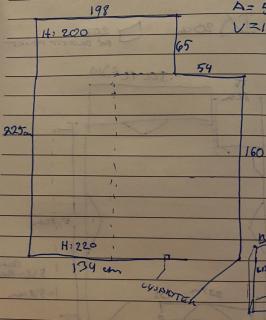 198
A =
V =
H: 200
65
54
225
160
H: 220
134 cm